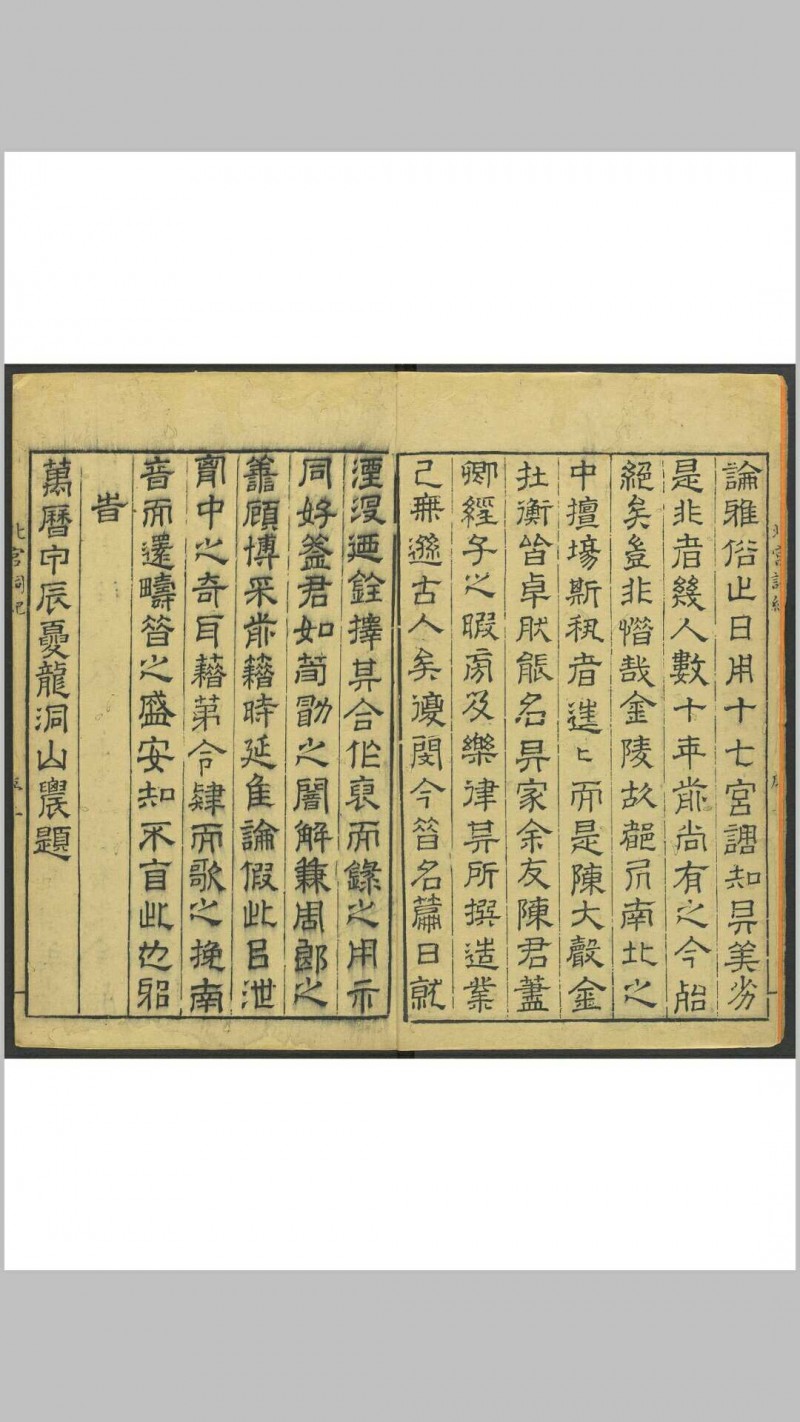 論雅俗止日用十七宮調知其美劣
是非者幾人數十年前尚有之今殆
絕矣豈非惜哉金陵故都爲南北之
中擅場斯秇者進〻而是陳大聲金
在衡皆卓肰能名其家余友陳君藎
卿經子之暇旁及樂律其所撰造業
已無遜古人矣復閔今昔名蕭日就
湮沒迺銓擇其合作裒而錄之用示
同好蓋君如荀勖之闇解兼周郎之
善顧博采前籍時延隹論假此㠯泄
胷中之奇耳藉第令肄而歌之挽南
音而還疇昔之盛安知不盲此也邪

萬曆甲辰憂龍洞山農題
北宮詞紀
北宮詞紀
序